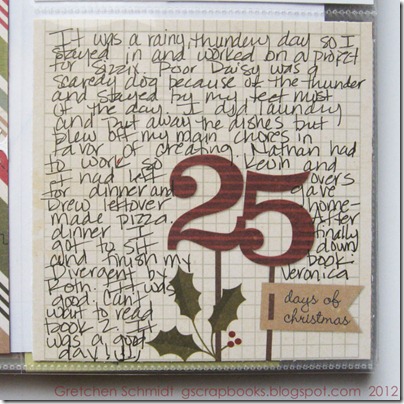 It was a rainy, thundery day so I
stayed in and worked on a project
for Sizzix. Poor Daisy was a
scaredy dog because of the thunder
and stayed by my feet most
of the day. I did laundry
and put away the dishes but
blew off my main chores in
favor of creating. Nathan had
to work so Kevin and
I had left overs
for dinner and gave
Drew leftover home-
made pizza. After
dinner I finally
got to sit down
and finish my book:
Divergent by Veronica
Roth. It was
good. Can't
wait to read
book 2. It
was a good
day!!!
25
days of
christmas
Gretchen Schmidt gscrapbooks.blogspot.com 2012